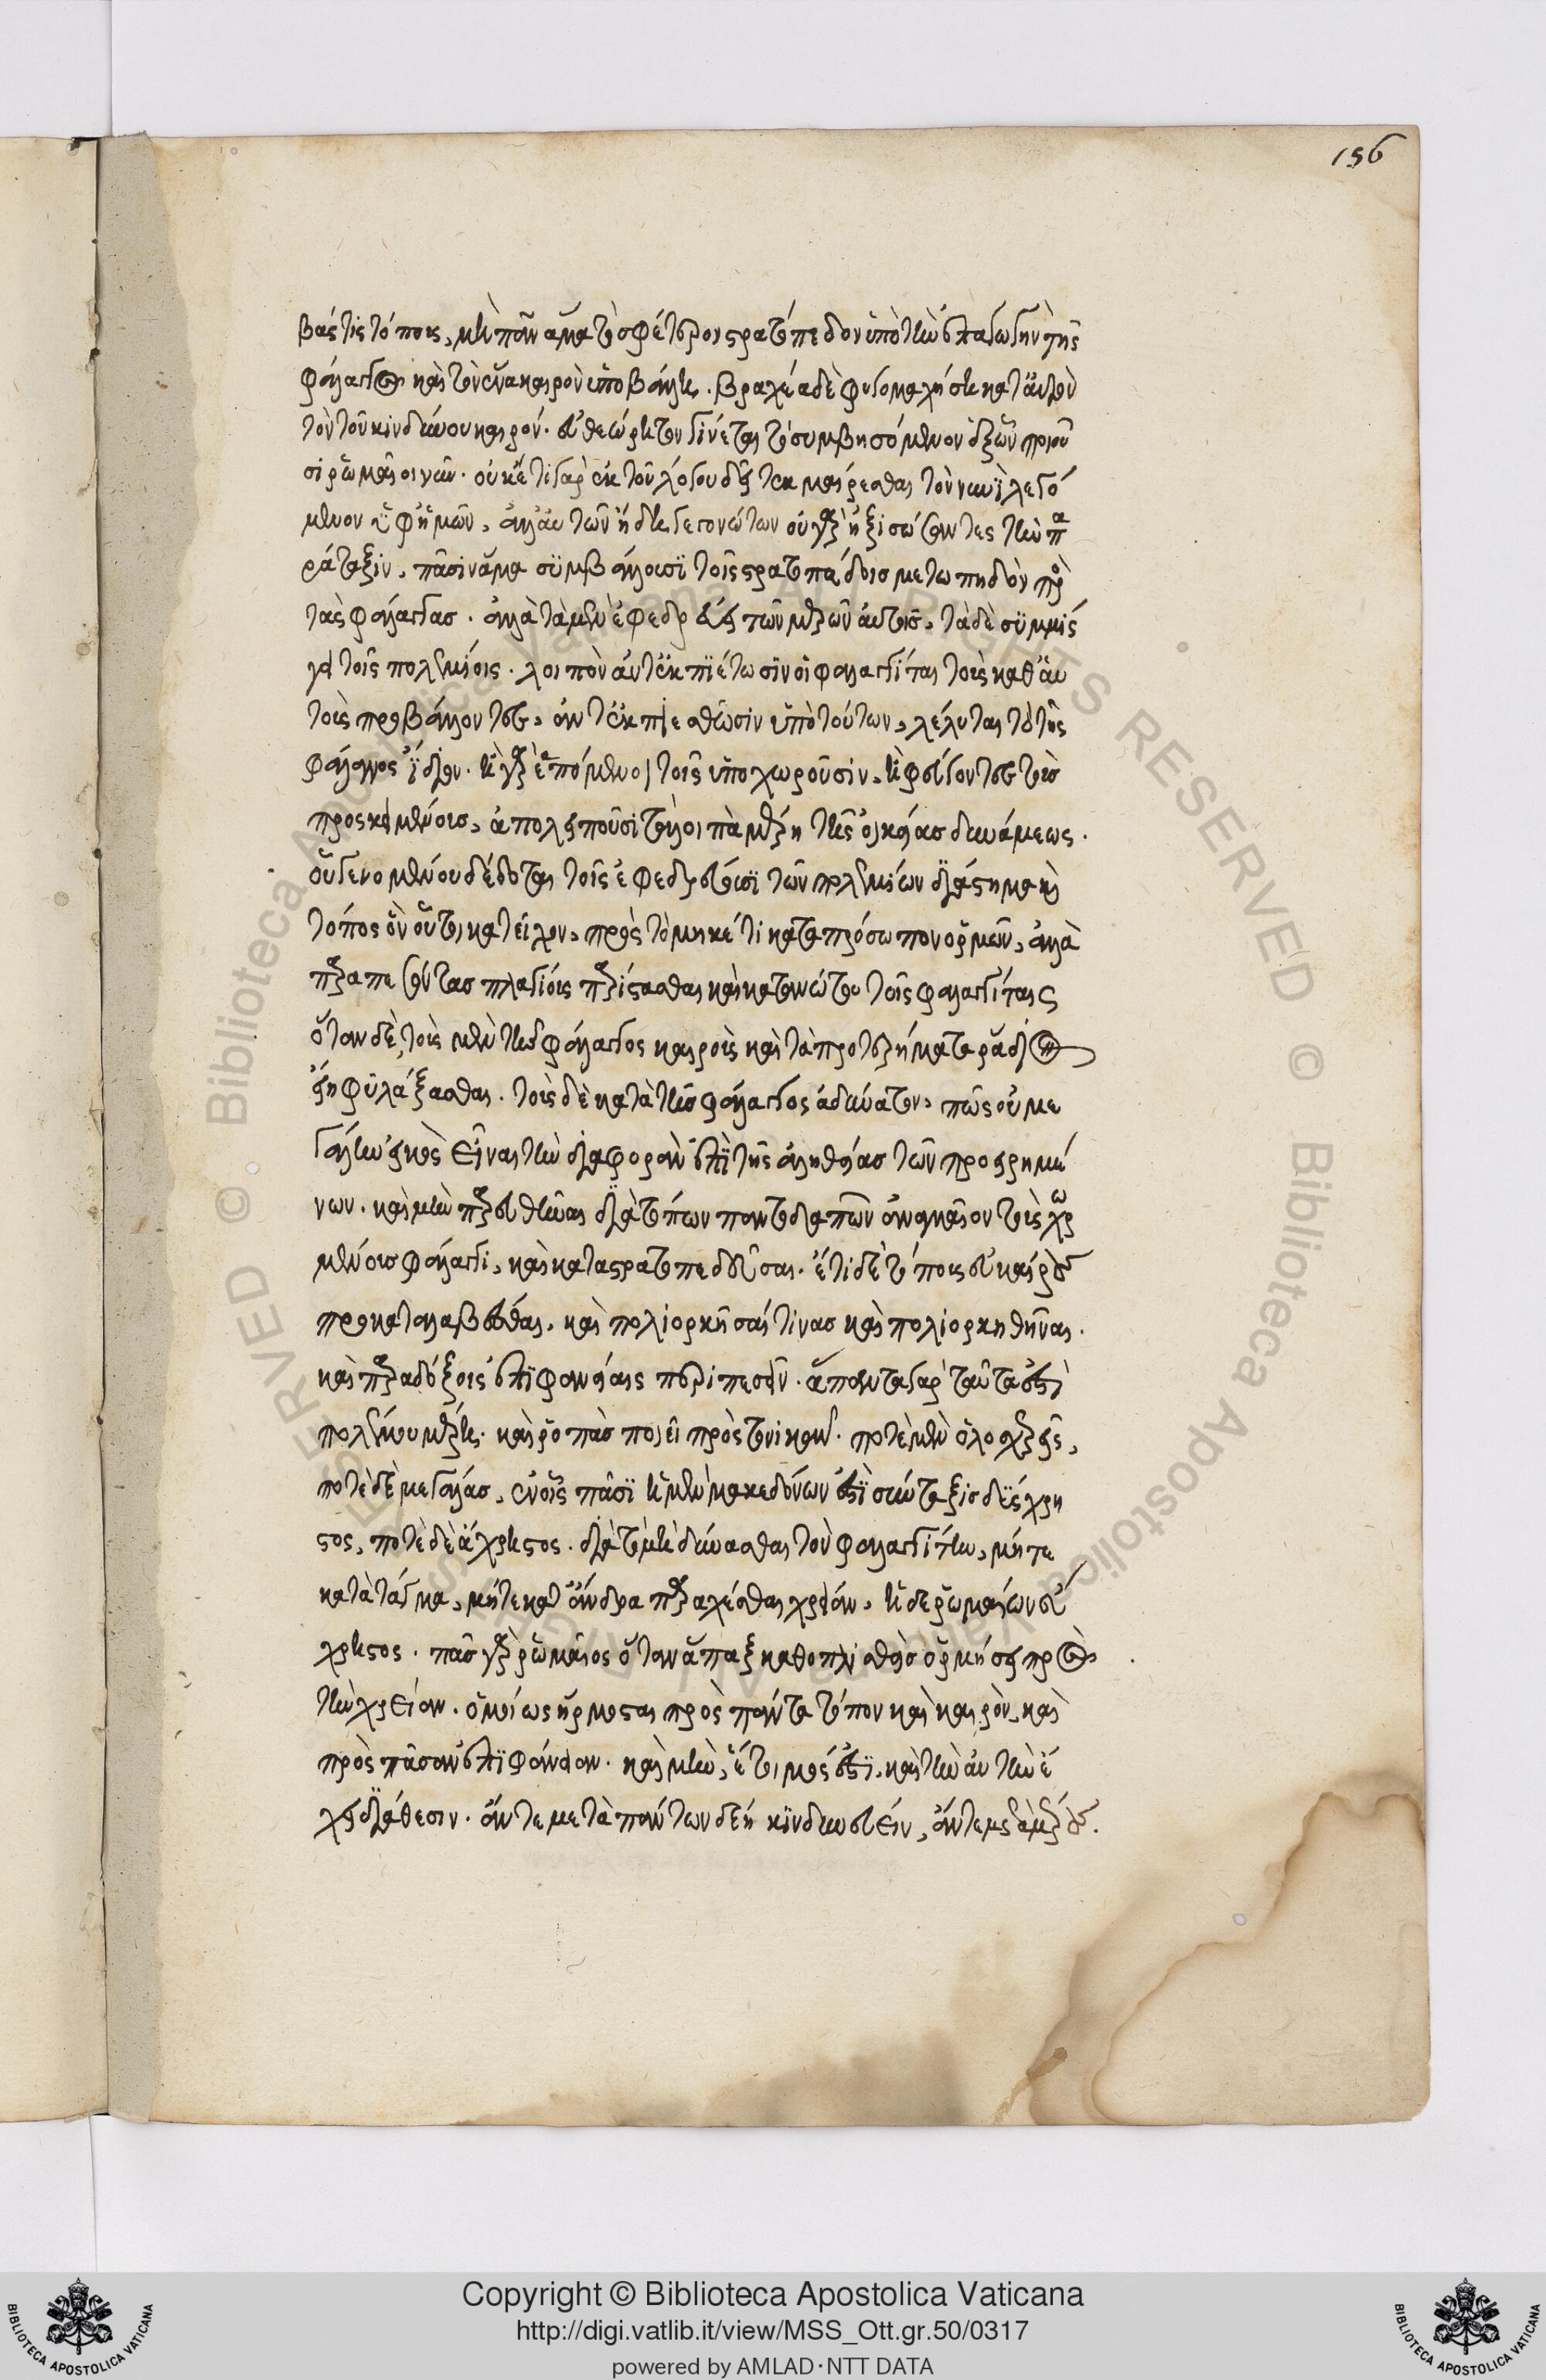 βὰς τῖς τόποις, μὴ πᾶν ἅμα τὸ σφέτερον στρατόπεδον ὑπὸ τὴν ἐπαγωγὴν τῆς
φάλαγγος καὶ τὸν ἕνα καιρὸν ὑποβάλλη. βραχέα δὲ φυγομαχήση κατ' αὐτὸν
τὸν τοῦ κινδύνου καιρόν. εὐθεώρητον γίνεται τὸ συμβησόμενον ἐξ ὧν ποιοῦ
σι ῥωμαῖοι νῦν. οὐκέτι γὰρ ἐκ τοῦ λόγου δεῖ τεκμαίρεσθαι τὸν νυνὶ λεγό
μενον ὑφ' ἡμῶν, ἀλλ' ἐκ τῶν ἤδη γεγονότων οὐ γὰρ ἠξισώσαντες τὴν πα
ράταξιν, πᾶσιν ἅμα συμβάλλουσι τοῖς στρατοπαίδοις μετωπηδὸν πρὸς
τὰς φάλαγγας. ἀλλὰ τὰ μὲν ἐφεδρεύει τῶν μερῶν αὐτοῖς, τὰ δὲ συμμίσ
γει τοῖς πολεμίοις. λοιπὸν ἄν τ' ἐκπιέτωσιν οἱ φαλαγγίται τοὺς καθ' αὑ
τοὺς προβάλλοντες, ἄν τ' ἐκπιεσθῶσιν ὑπὸ τούτων, λέλυται τὸ τῆς
φάλαγγος ἴδιον. ἢ γὰρ ἑπόμενοι τοῖς ὑποχωροῦσιν, ἢ φεύγοντες τοὺς
προσκειμένοις, ἀπολείπουσι τὰ λοιπὰ μέρη τῆς οἰκείας δυνάμεως.
οὗ γενομένου δέδοται τοῖς ἐφεδρεύουσι τῶν πολεμίων διάστημα καὶ
τόπος ὃν οὗτοι κατεῖχον, πρὸς τὸ μηκέτι κατὰ πρόσωπον ὁρμᾶν, ἀλλὰ
παραπεσόντας πλαγίοις παρίστασθαι καὶ κατὰ νώτου τοῖς φαλαγγίταις
ὅταν δὲ, τοὺς μὲν τῆς φάλαγγος καιροὺς καὶ τὰ προτερήματα ῥάδιον
ἦ φυλάξασθαι. τοὺς δὲ κατὰ τῆς φάλαγγος ἀδύνατον, πῶς οὐ με
γάλην εἰκὸς εἶναι τὴν διαφορὰν ἐπὶ τῆς ἀληθείας τῶν προειρημέ
νων. καὶ μὴν παρευθῆναι διὰ τόπων παντοδαπῶν ἀναγκαῖον τοὺς χρω
μένους φάλαγγι, καὶ καταστρατοπεδεῦσαι. ἔτι δὲ τόπους εὐκαίρους
προκαταλαβέσθαι, καὶ πολιορκῆσαί τινας καὶ πολιορκηθῆναι.
καὶ παραδόξοις ἐπιφανείαις περιπεσεῖν. ἅπαντα γὰρ ταῦτα ἐστὶ
πολέμου μέρη. καὶ ῥοπὰς ποιεῖ πρὸς τὸ νικᾶν. ποτὲ μὲν ὁλοσχερεῖς,
ποτὲ δὲ μεγάλας, ἐν οἷς πᾶσι ἡ μὲν μακεδόνων ἐστὶ σύνταξις δύσχρη
στος, ποτὲ δὲ ἄχρηστος. διὰ τὸ μὴ δύνασθαι τὸν φαλαγγίτην, μήτε
κατὰ τάγμα, μήτε κατ' ἄνδρα παρασχέσθαι χρείαν, ἡ δὲ ῥωμαίων εὔ
χρηστος. πᾶς γὰρ ῥωμαῖος ὅταν ἅπαξ καθοπλισθεὶς ὁρμήση πρὸς
τὴν χρείαν. ὁμοίως ἥρμοσται πρὸς πάντα τόπον καὶ καιρὸν, καὶ
πρὸς πᾶσαν ἐπιφάνειαν. καὶ μὴν, ἕτοιμός ἐστι, καὶ τὴν αὐτὴν ἔ
χει διάθεσιν. ἄν τε μετὰ πάντων δέη κινδυνεύειν, ἄν τε μετὰ μέρους.